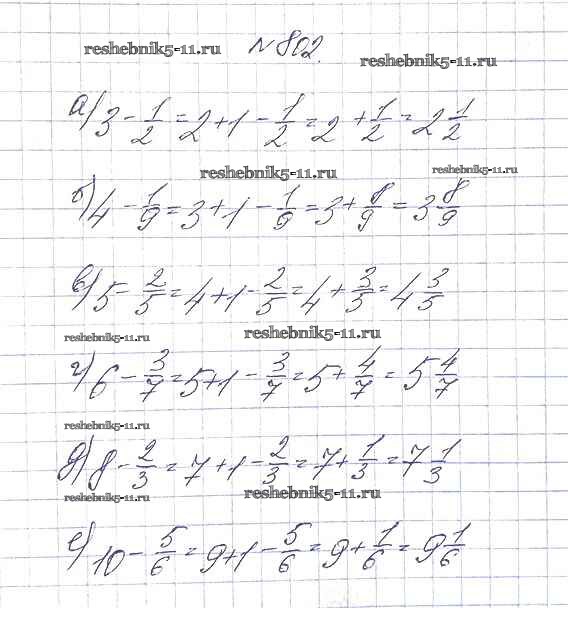 reshebnik5-11.ru
№ 802.
reshebnik5-11.ru
а) 3 - 1/2 = 2 + 1 - 1/2 = 2 + 1/2 = 2 1/2
reshebnik5-11.ru
reshebnik5-11.ru
б) 4 - 1/9 = 3 + 1 - 1/9 = 3 + 8/9 = 3 8/9
в) 5 - 2/5 = 4 + 1 - 2/5 = 4 + 3/5 = 4 3/5
reshebnik5-11.ru
reshebnik5-11.ru
г) 6 - 3/7 = 5 + 1 - 3/7 = 5 + 4/7 = 5 4/7
reshebnik5-11.ru
д) 8 - 2/3 = 7 + 1 - 2/3 = 7 + 1/3 = 7 1/3
reshebnik5-11.ru
reshebnik5-11.ru
е) 10 - 5/6 = 9 + 1 - 5/6 = 9 + 1/6 = 9 1/6